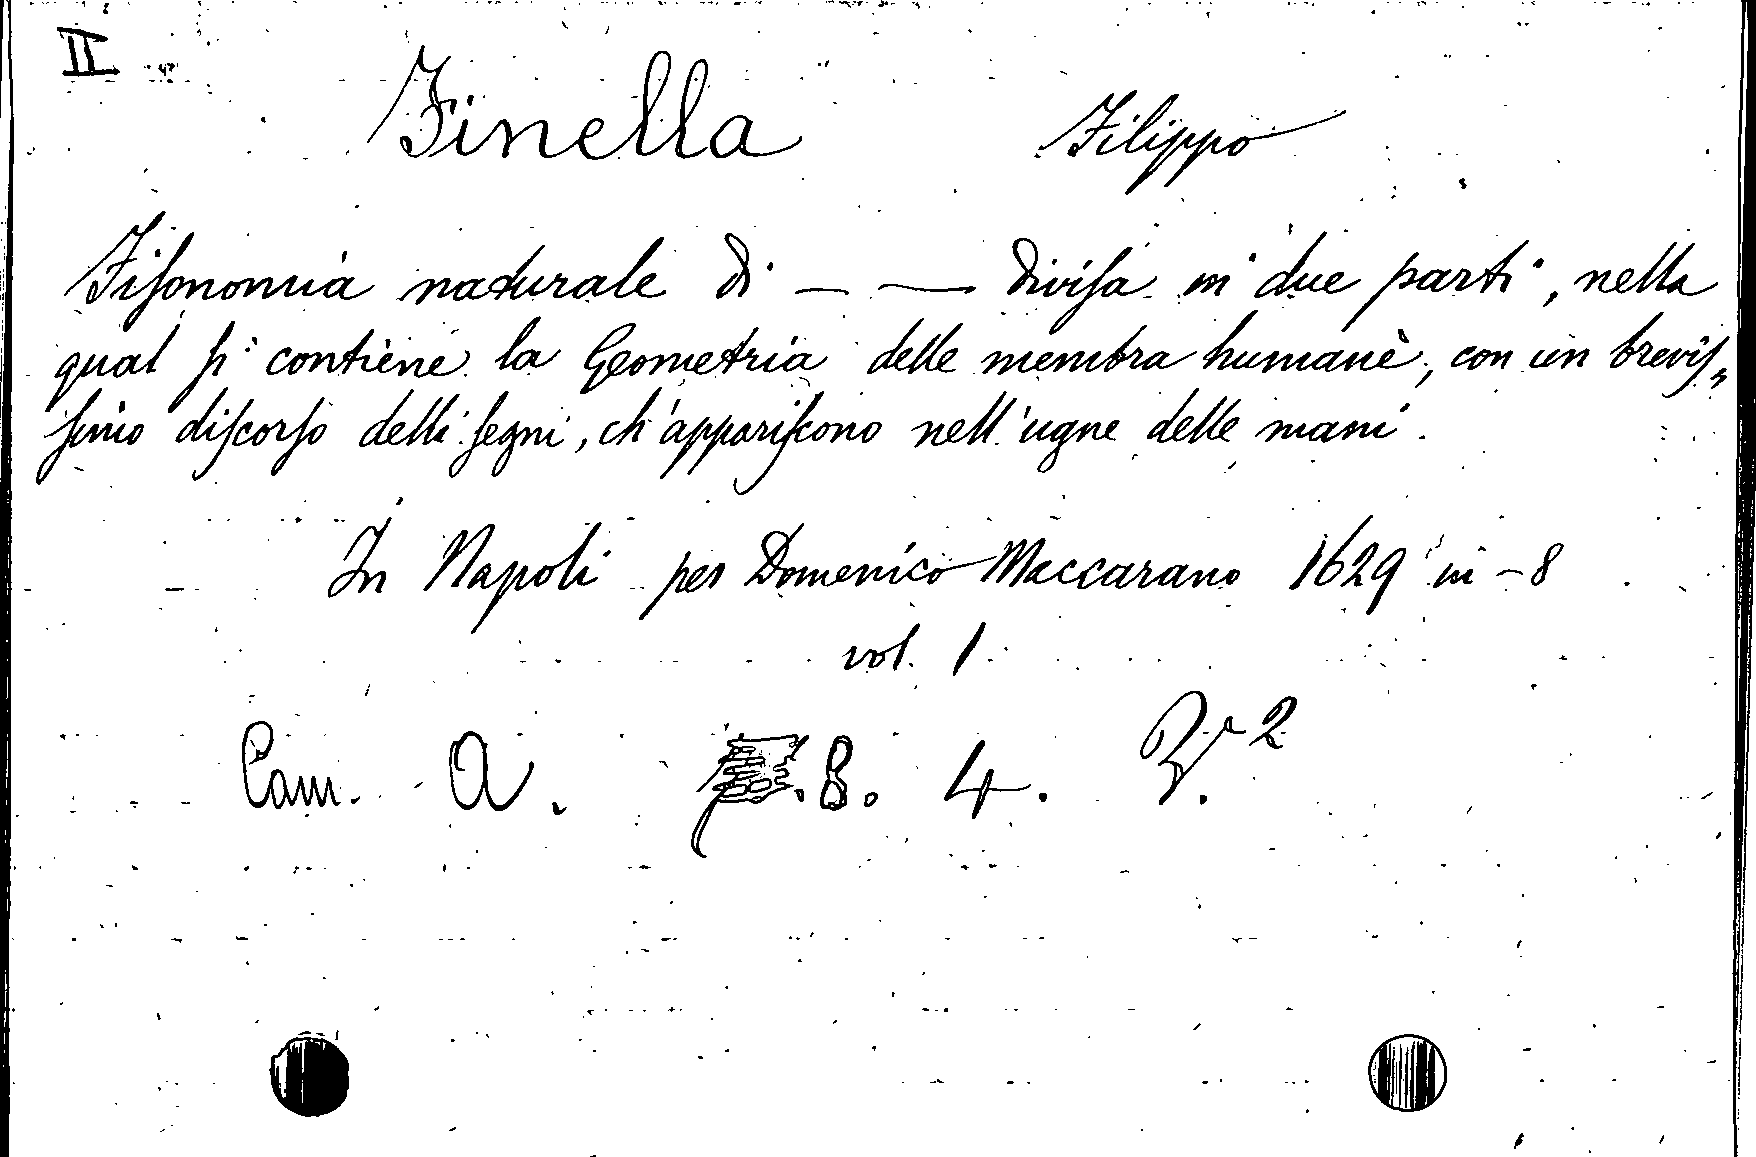 II
Finella Filippo
Fiſonomia naturale di — — diviſa in due parti, nella
qual ſi contiene la Geometria delle membra humane, con un breviſ„
ſimo diſcorſo delli ſegni, ch'appariſcono nell'ugne delle mani.
In Napoli per Domenico Maccarano 1629 in-8
vol. 1.
Cam. A. 8. 4. 2